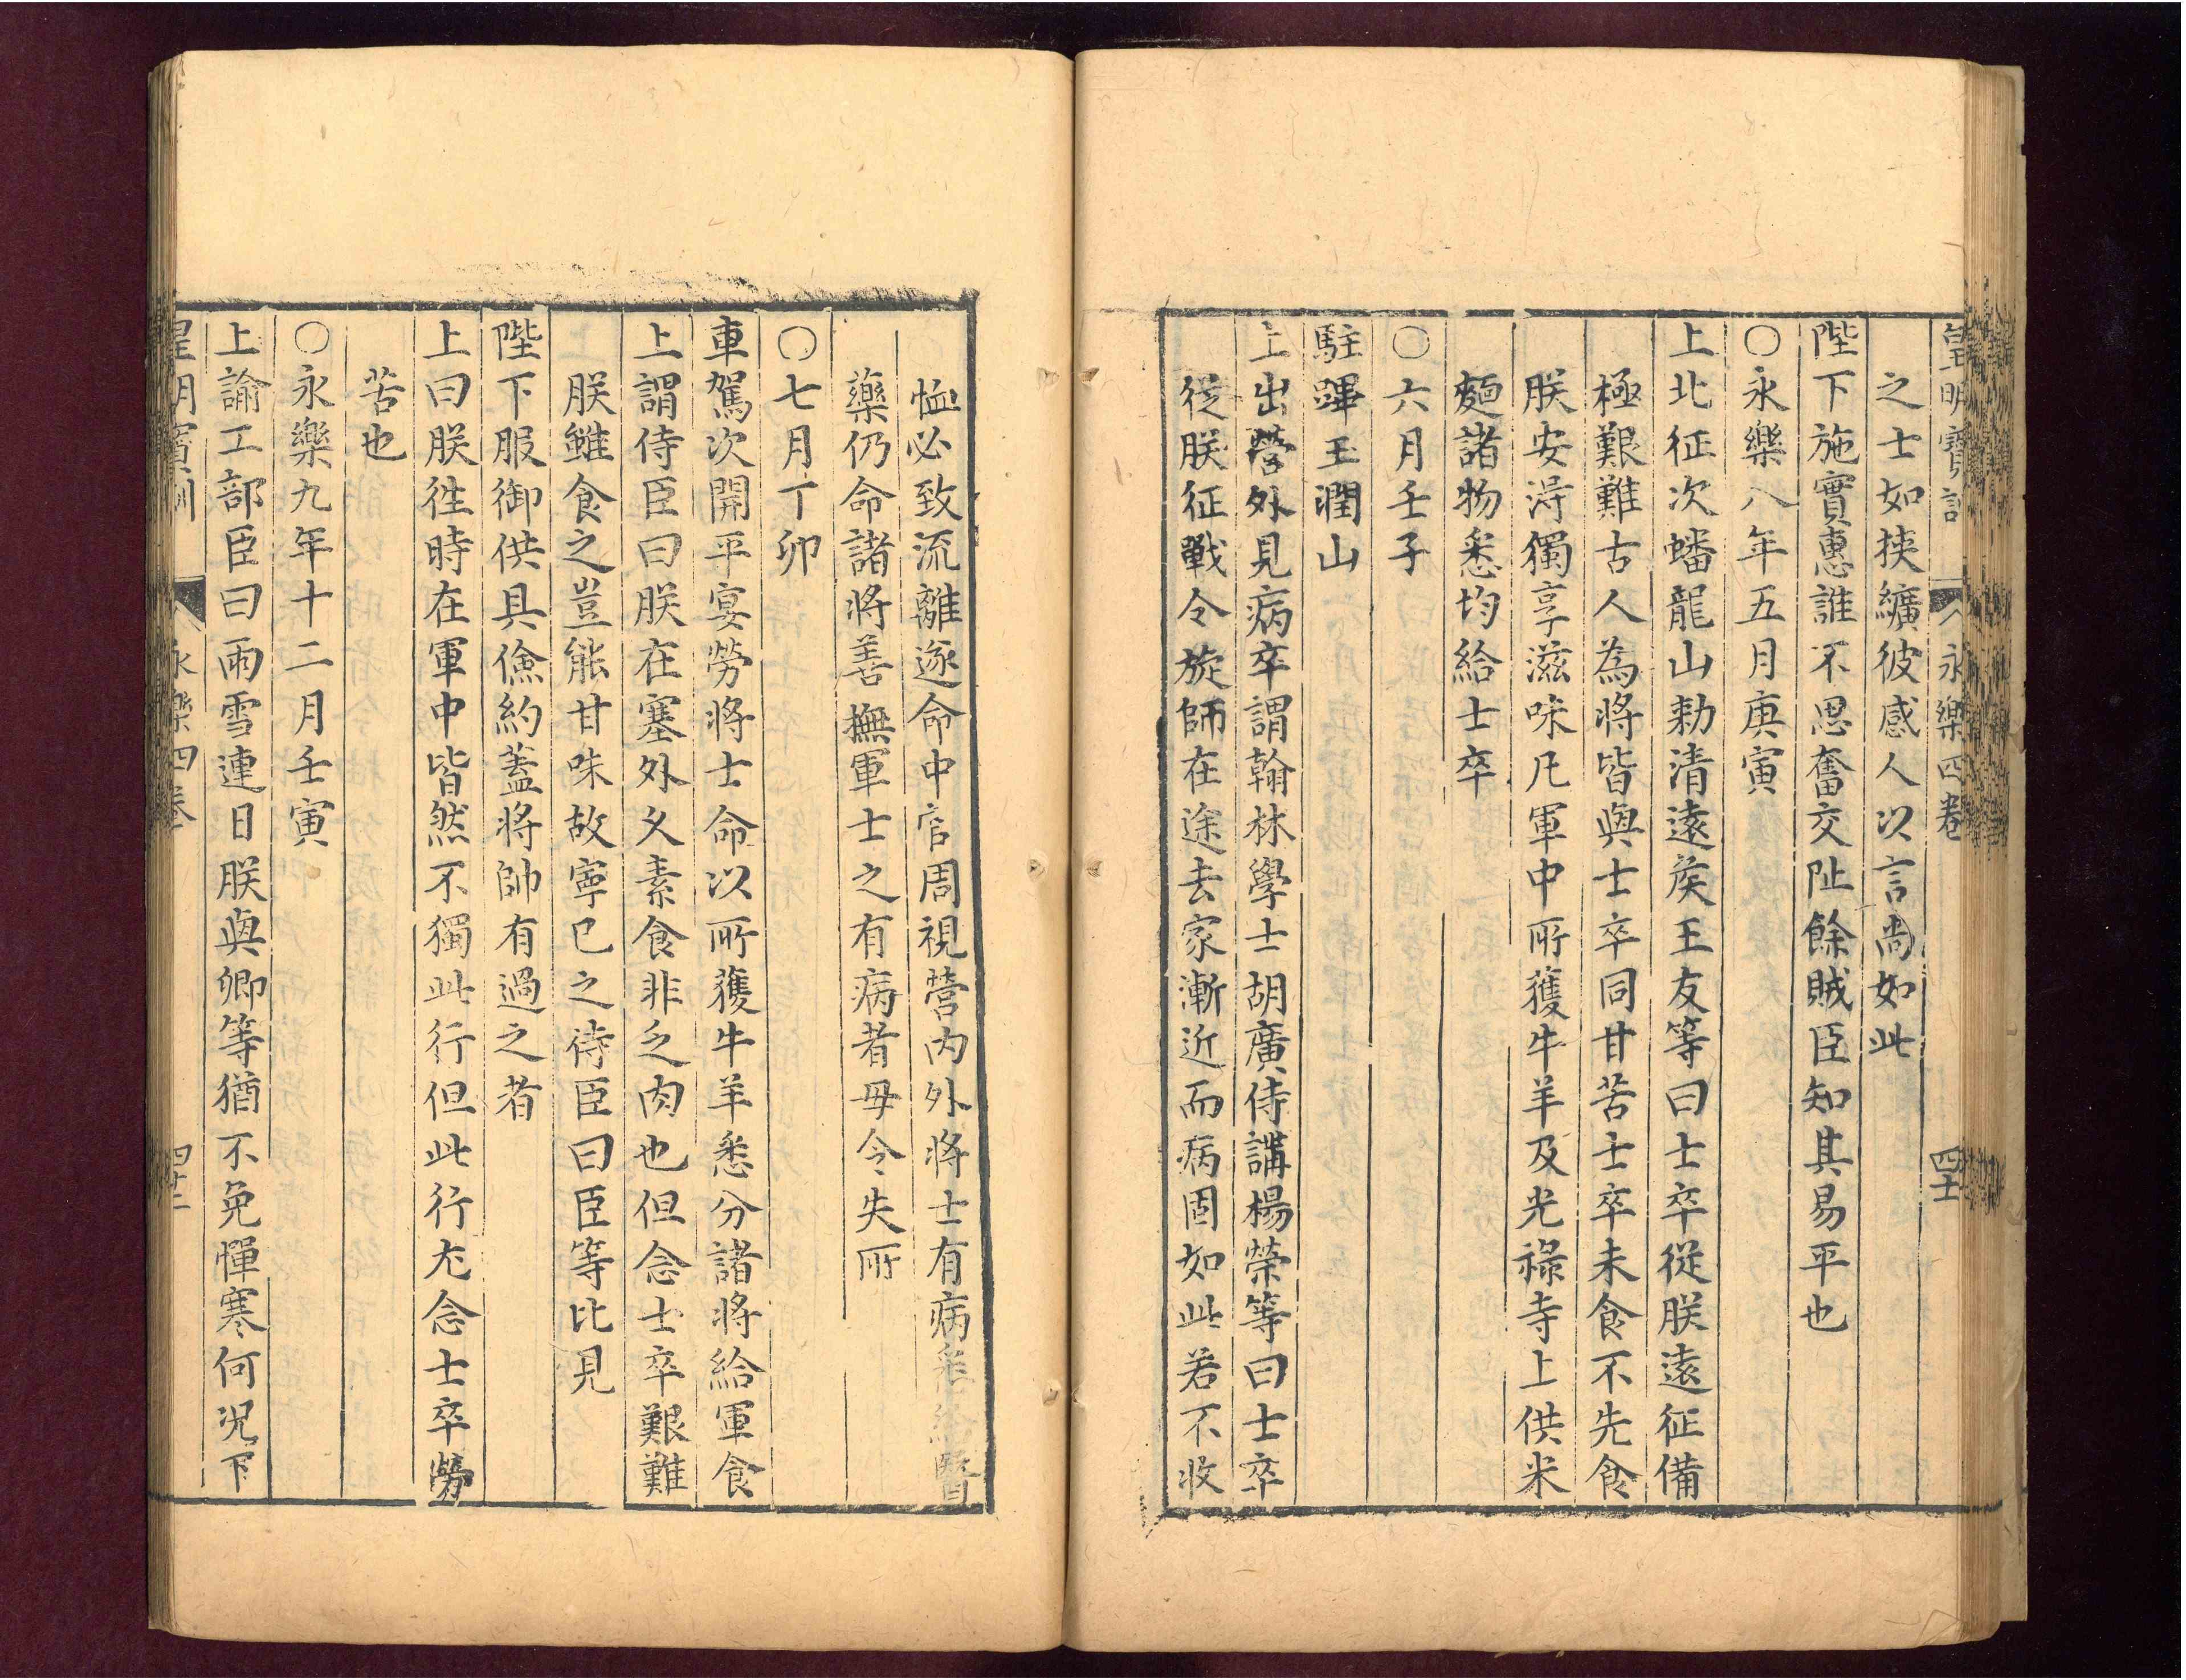 皇明寶訓 永樂四卷 四十
之士如挾纊彼感人以言尚如此
陛下施實惠誰不思奮交阯餘賊臣知其易平也
○永樂八年五月庚寅
上北征次蟠龍山勑清遠矦王友等曰士卒從朕遠征備
極艱難古人為將皆與士卒同甘苦士卒未食不先食
朕安淂獨享滋味凡軍中所獲牛羊及光祿寺上供米
麵諸物悉均給士卒
○六月壬子
駐蹕玉潤山
上出營外見病卒謂翰林學士胡廣侍講楊榮等曰士卒
從朕征戰今旋師在途去家漸近而病困如此若不收
恤必致流離遂命中官周視營内外將士有病者給醫
藥仍命諸將善撫軍士之有病者毋令失所
○七月丁卯
車駕次開平宴勞將士命以所獲牛羊悉分諸將給軍食
上謂侍臣曰朕在塞外久素食非乏肉也但念士卒艱難
朕雖食之豈能甘味故寧已之侍臣曰臣等比見
陛下服御供具儉約蓋將帥有過之者
上曰朕徃時在軍中皆然不獨此行但此行尤念士卒勞
苦也
○永樂九年十二月壬寅
上諭工部臣曰雨雪連日朕與卿等猶不免憚寒何况下
皇明寳訓 永樂四卷